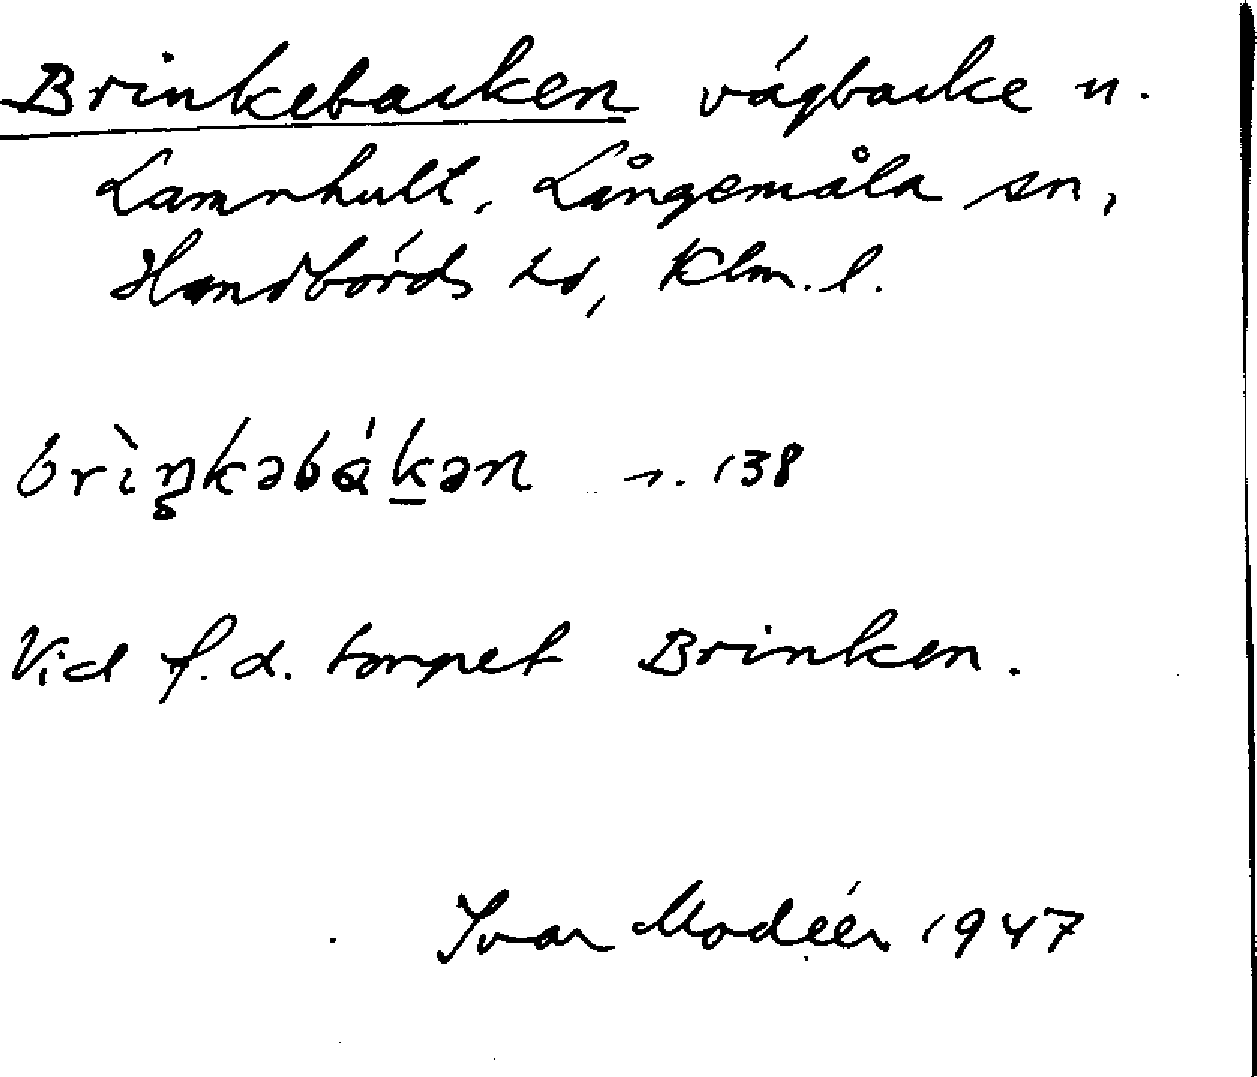 Brinkebacken vägbacke n.
Lamnhult, Långemåla sn,
Handbörds hd, Klm. l.
brìŋkəbákən n. 138
Vid f.d. torpet Brinken.
Ivar Modéer 1947